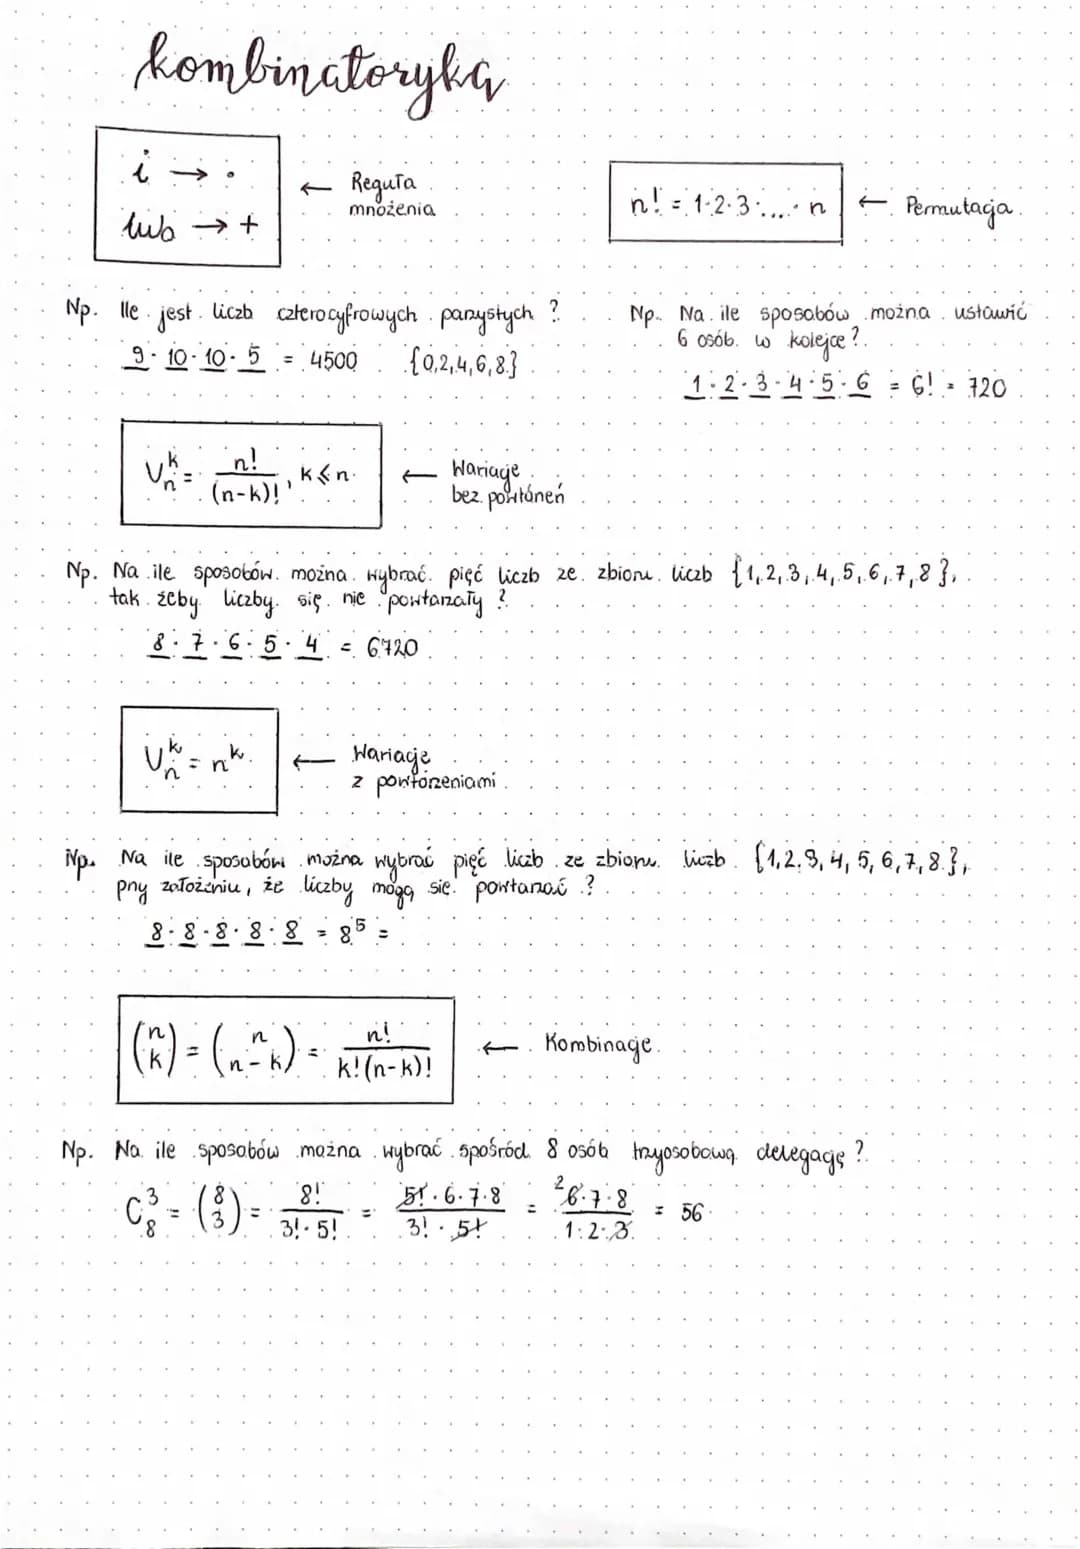 kombinatoryka
i → ·
lub → +
← Reguła
mnożenia
n! = 1·2·3·...·n
← Permutacja
Np. Ile jest liczb czterocyfrowych parzystych ?
9·10·10·5 = 4500 {0,2,4,6,8}
Np. Na ile sposobów można ustawić
6 osób w kolejce?
1·2·3·4·5·6 = 6! = 720
V_n^k = n!/(n-k)!, k⩽n
← Wariacje
bez powtórzeń
Np. Na ile sposobów można wybrać pięć liczb ze zbioru liczb {1,2,3,4,5,6,7,8},
tak żeby liczby się nie powtarzały ?
8·7·6·5·4 = 6720
V_n^k = n^k
← Wariacje
z powtórzeniami
Np. Na ile sposobów można wybrać pięć liczb ze zbioru liczb {1,2,3,4,5,6,7,8},
przy założeniu, że liczby mogą się powtarzać ?
8·8·8·8·8 = 8^5 =
(n k) = (n n-k) = n!/k!(n-k)!
← Kombinacje
Np. Na ile sposobów można wybrać spośród 8 osób trzyosobową delegację ?
C_8^3 = (8 3) = 8!/3!·5! = 5!·6·7·8/3!·5! = ²6·7·8/1·2·3 = 56